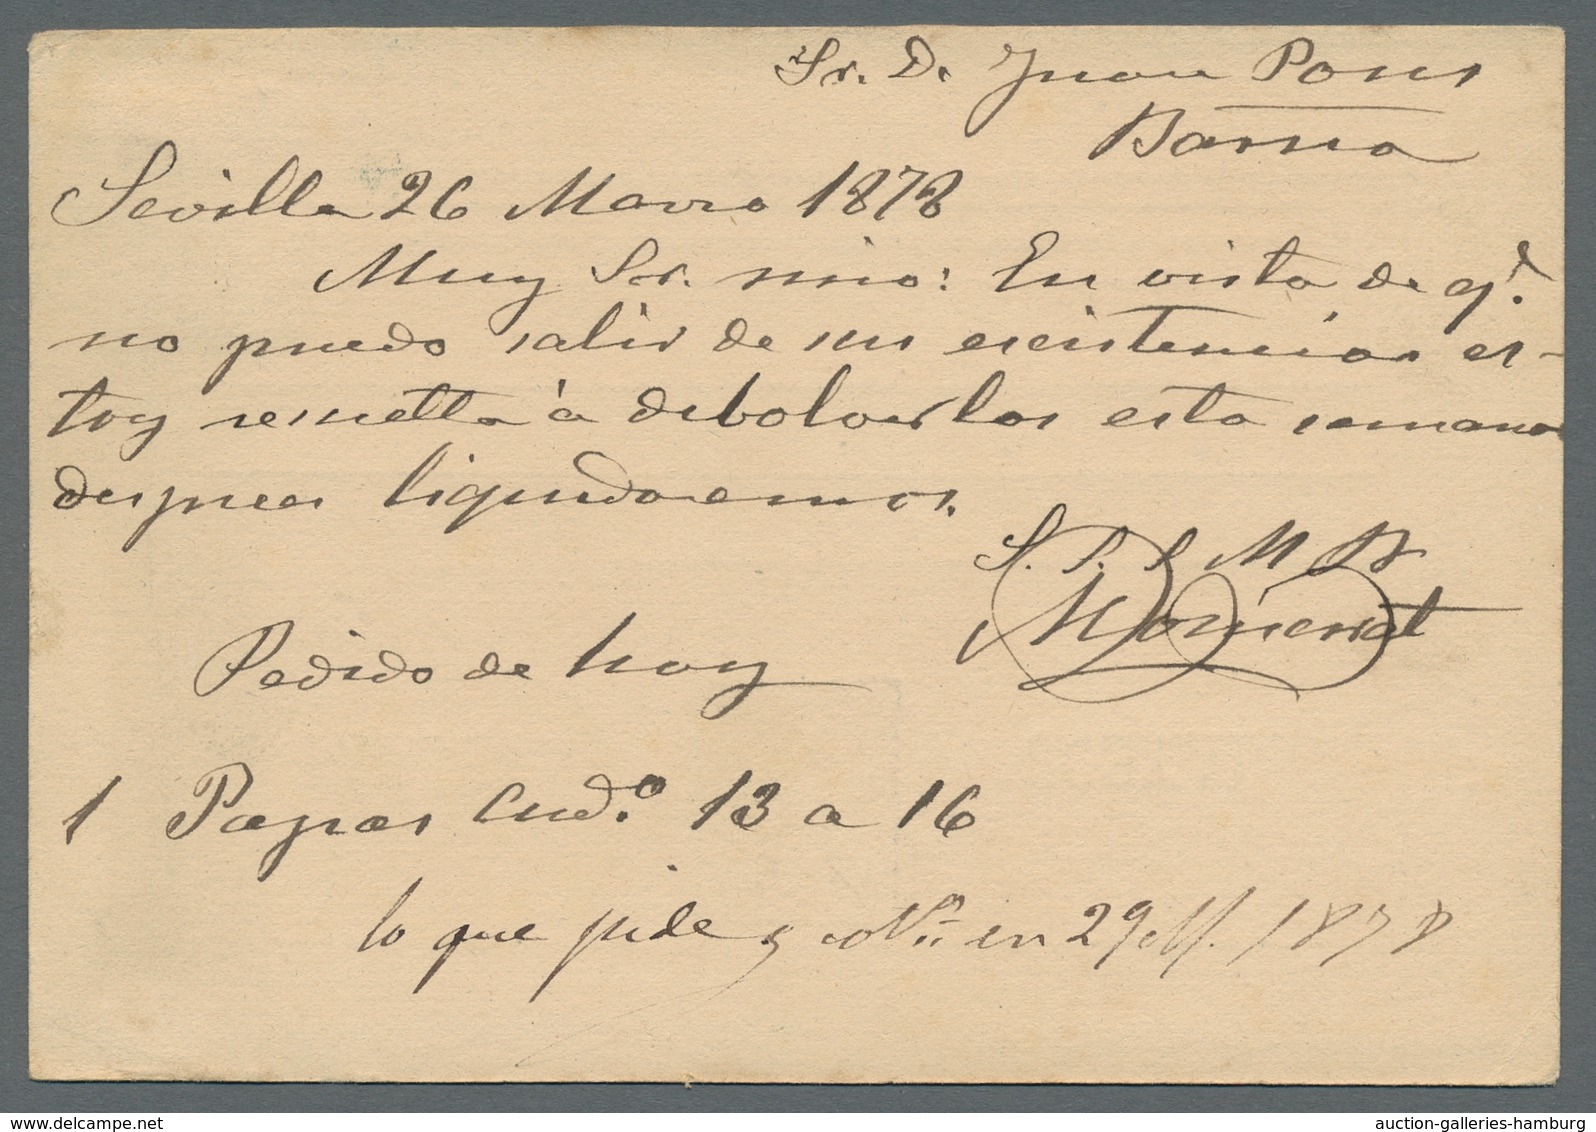 Sr. D. Juan Pons
Barna
Sevilla 26 Marzo 1878
Muy Sr. mio: En vista de qe.
no puedo salir de sus existencias es-
toy resuelto á debolverlas esta semana
despues liquidaremos.
S. S. S. M B
Monserrat
Pedido de hoy
1 Papas Cudo. 13 a 16
lo que pide y en 29 M. 1878
www.delcampe.net
auction-galleries-hamburg